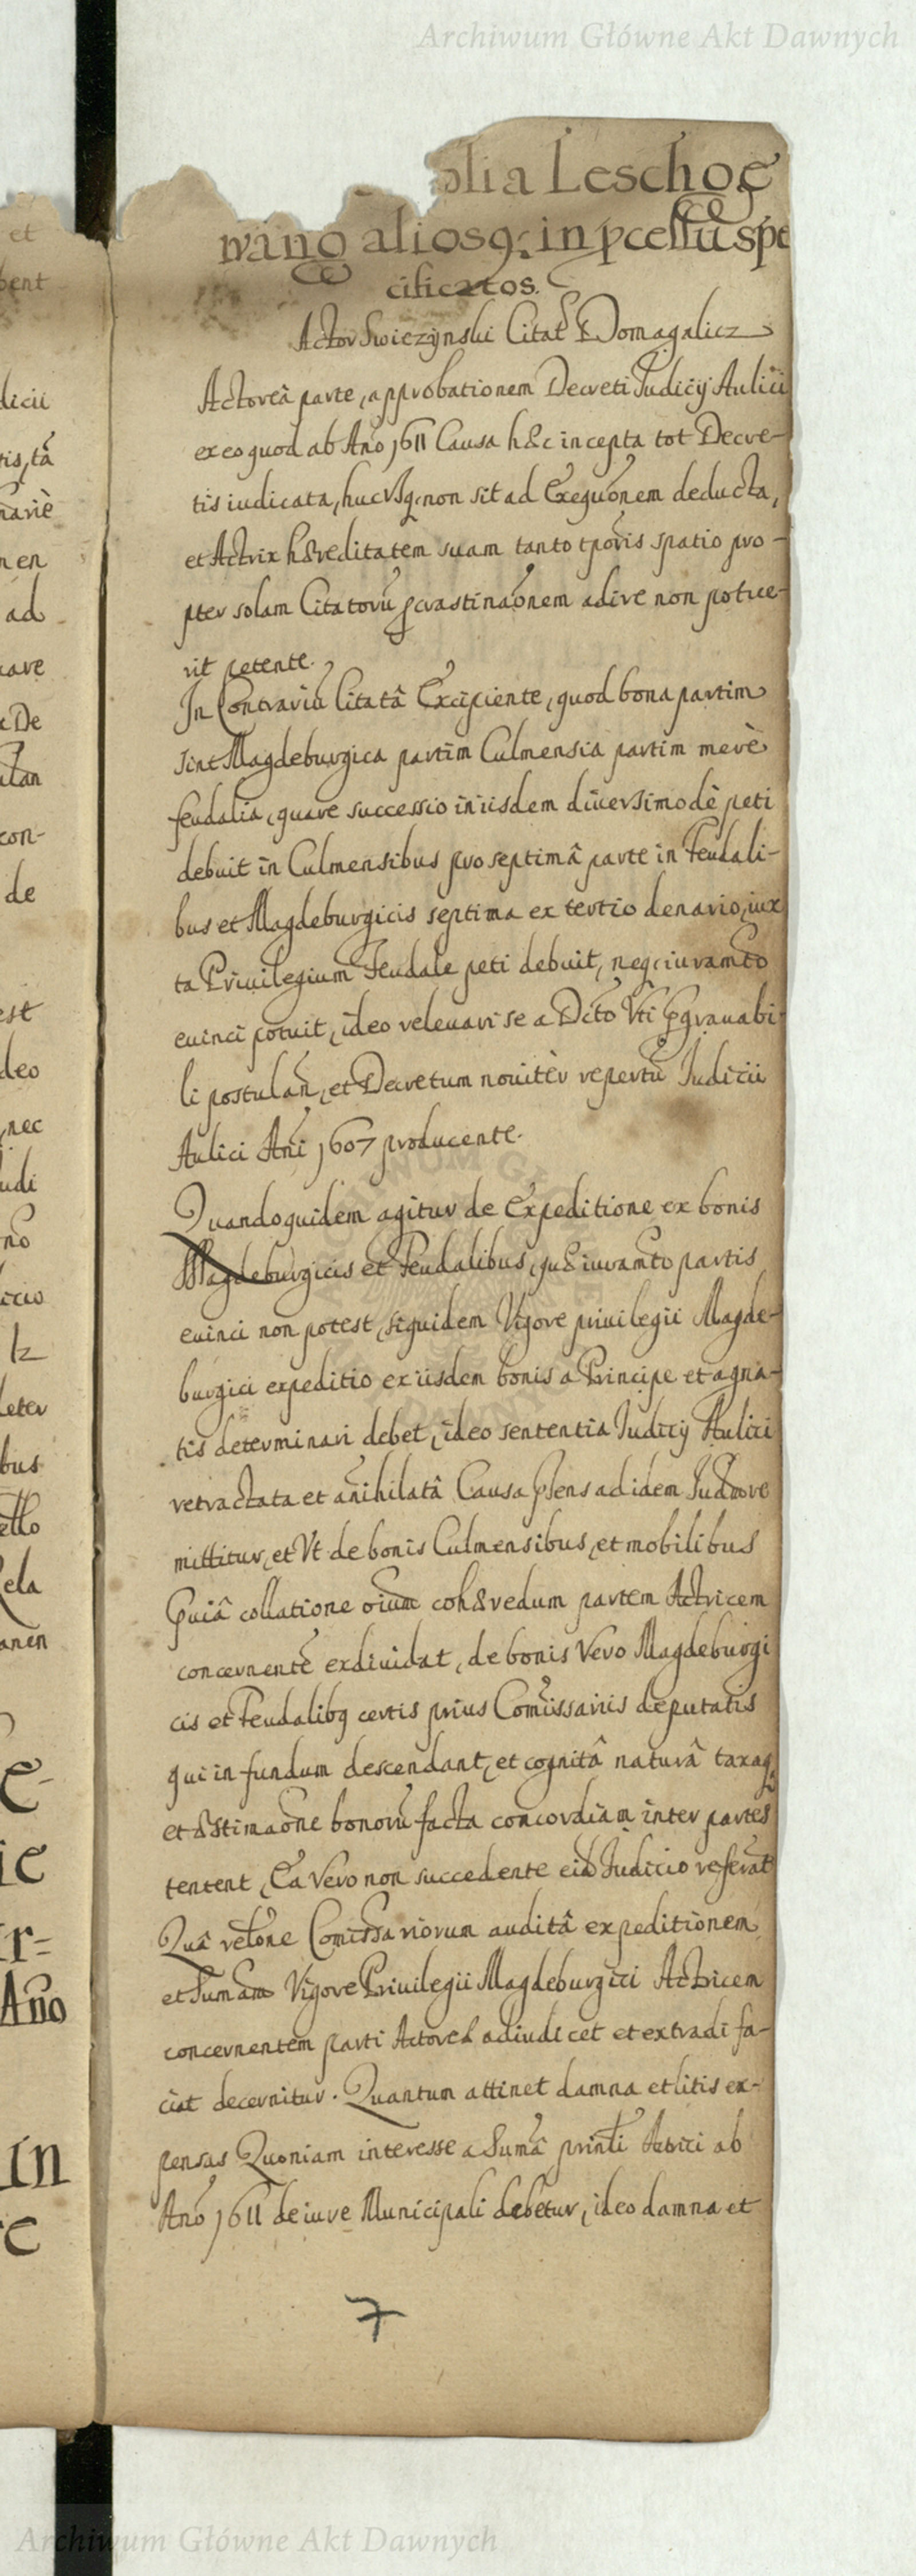 Archiwum Główne Akt Dawnych
olia Leschge
wang aliosq; in pcessu spe
cificatos.
Actor Swiezynski Citat Domagalicz
Actoreâ parte, approbationem Decreti Judicij Aulici
ex eo quod ab Año 1611 Causa hæc incepta tot Decre-
tis iudicata, hucvsq; non sit ad Exequõnem deducta,
et Actrix hæreditatem suam tanto tporis spatio pro-
pter solam Citatorũ pcrastinaõnem adire non potue-
rit petente.
In Contrariũ Citatâ Excipiente, quod bona partim
sint Magdeburgica partim Culmensia partim merè
feudalia, quare successio in iisdem diuersimodè peti
debuit in Culmensibus pro septimâ parte in Feudali-
bus et Magdeburgicis septima ex tertio denario, iux
ta Priuilegium Feudale peti debuit, neq; iuramto
euinci potuit, ideo releuari se a Dcto Vti Pgrauabi-
li postulan, et Decretum nouitèr repertũ Judicii
Aulici Añi 1607 producente.
Quandoquidem agitur de Expeditione ex bonis
Magdeburgicis et Feudalibus, quæ iuramto partis
euinci non potest, siquidem Vigore priuilegii Magde-
burgici expeditio ex iisdem bonis a Principe et agna-
tis determinari debet, ideo sententia Judicij Aulici
retractata et añihilatâ Causa psens ad idem Judm re
mittitur, et Vt de bonis Culmensibus, et mobilibus
Pviâ collatione oium cohæredum partem Actricem
concernentẽ exdiuidat, de bonis Vero Magdeburgi
cis et Feudalibq certis prius Comissariis deputatis
qui in fundum descendant, et cognitâ naturâ taxaq;
et æstimaõne bonorũ facta concordiam inter partes
tentent, Ea Vero non succedente eid Judicio referat
Quâ reltone Comissariorum auditâ expeditionem
et Sumam Vigore Priuilegii Magdeburgici Actricem
concernentem parti Actoreæ adiudicet et extradi fa-
ciat decernitur. Quantum attinet damna et litis ex-
pensas Quoniam interesse a Sumâ prinli Actrici ab
Año 1611 de iure Municipali debetur, ideo damna et
7
Archiwum Główne Akt Dawnych